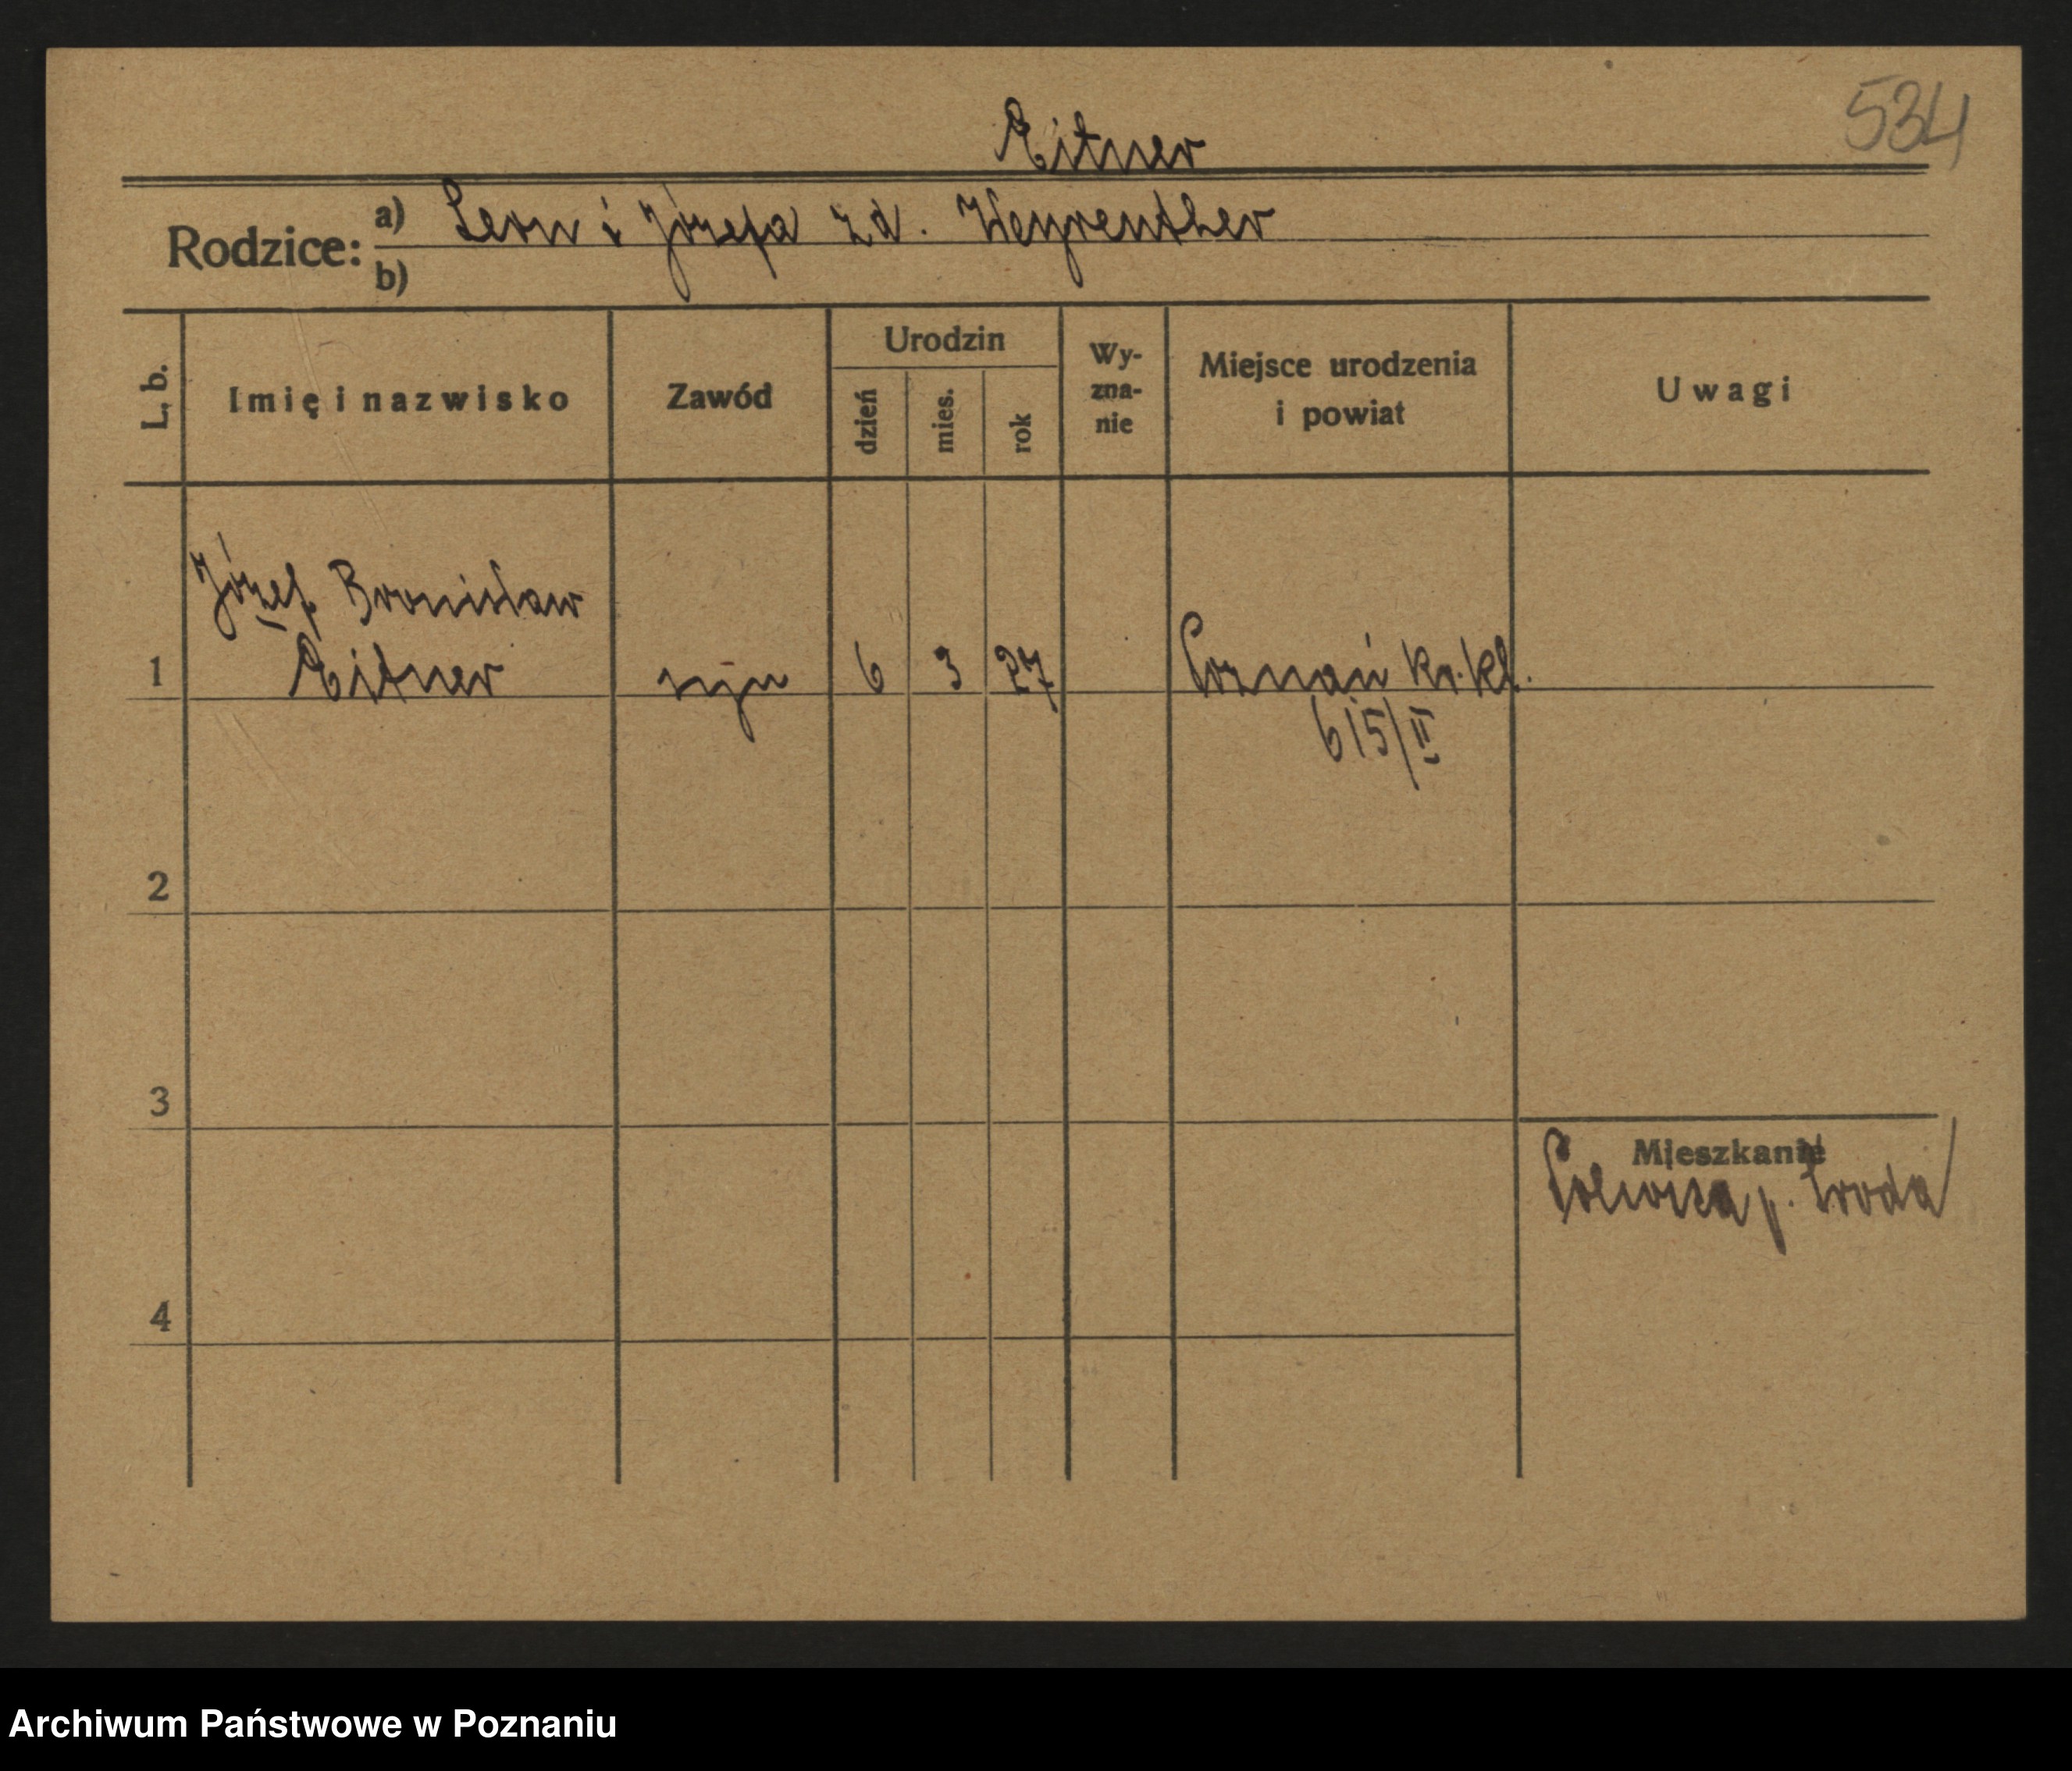 534
Eitner
Rodzice: a) Leon i Józefa zd. Weyrenther
b)
L. b. Imię i nazwisko Zawód Urodzin dzień mies. rok Wy-zna-nie Miejsce urodzenia i powiat Uwagi
Józef Bronisław
1 Eitner syn 6 3 27 Poznań Kr. Kl.
615/II
2
3
Mieszkanie
p. Środa
4
Archiwum Państwowe w Poznaniu